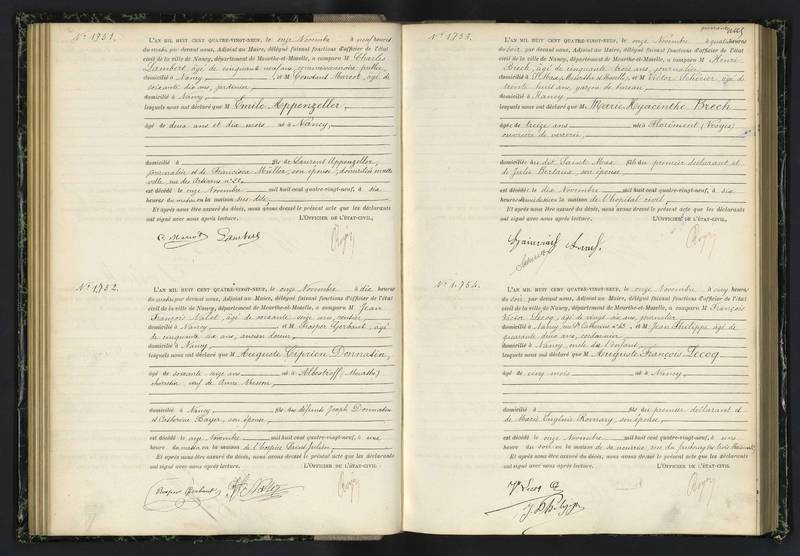 N° 1751.
L'AN MIL HUIT CENT QUATRE-VINGT-NEUF, le onze Novembre à neuf heures
du matin par devant nous, Adjoint au Maire, délégué faisant fonctions d'officier de l'état
civil de la ville de Nancy, département de Meurthe-et-Moselle, a comparu M Charles
Lambert, âgé de cinquante neuf ans, commissionnaire public,
domicilié à Nancy, et M Constant Marcot, âgé de
soixante dix ans, jardinier,
domicilié à Nancy
lesquels nous ont déclaré que M Emile Appenzeller,
âgé de deux ans et dix mois né à Nancy,
domicilié à fils de Laurent Appenzeller,
journalier et de Francisca Müller, son épouse, domiciliés en cette
ville, rue des Artisans n° 21,
est décédé le onze Novembre mil huit cent quatre-vingt-neuf, à six
heures du matin en la maison sus dite,
Et après nous être assuré du décès, nous avons dressé le présent acte que les déclarants
ont signé avec nous après lecture. L'OFFICIER DE L'ÉTAT-CIVIL,
C. Marcot Lambert
N° 1752.
L'AN MIL HUIT CENT QUATRE-VINGT-NEUF, le onze Novembre à dix heures
du matin par devant nous, Adjoint au Maire, délégué faisant fonctions d'officier de l'état
civil de la ville de Nancy, département de Meurthe-et-Moselle, a comparu M Jean
François Nalot, âgé de soixante seize ans, rentier,
domicilié à Nancy, et M Prosper Gerbaut, âgé
de cinquante six ans, ancien
domicilié à Nancy
lesquels nous ont déclaré que M Auguste Ciprien Donnatin,
âgé de soixante onze ans né à Albestroff (Meurthe)
veuf de Anne
domicilié à Nancy, fils des défunts Joseph Donnatin
et Catherine Bayer, son épouse,
est décédé le onze Novembre mil huit cent quatre-vingt-neuf, à une
heure du matin en la maison de l'hospice Saint Julien,
Et après nous être assuré du décès, nous avons dressé le présent acte que les déclarants
ont signé avec nous après lecture. L'OFFICIER DE L'ÉTAT-CIVIL
Prosper Gerbaut
N° 1753.
L'AN MIL HUIT CENT QUATRE-VINGT-NEUF, le onze Novembre à quatre heures
du soir, par devant nous, Adjoint au Maire, délégué faisant fonctions d'officier de l'état
civil de la ville de Nancy, département de Meurthe-et-Moselle, a comparu M Henri
Brech, âgé de cinquante trois ans, journalier,
domicilié à St Max (Meurthe et Moselle), et M Victor, âgé de
trente huit ans, garçon de bureau,
domicilié à Nancy
lesquels nous ont déclaré que M Marie Hyacinthe Brech
âgée de treize ans née à Florémont (Vosges)
ouvrière de verrerie,
domiciliée au dit Saint-Max fille du premier déclarant et
de Julie Bertaux, son épouse,
est décédée le dix Novembre mil huit cent quatre-vingt-neuf, à dix
heures en la maison de l'hôpital civil,
Et après nous être assuré du décès, nous avons dressé le présent acte que les déclarants
ont signé avec nous après lecture. L'OFFICIER DE L'ÉTAT-CIVIL,
N° 1754.
L'AN MIL HUIT CENT QUATRE-VINGT-NEUF, le onze Novembre à cinq heures
du soir, par devant nous, Adjoint au Maire, délégué faisant fonctions d'officier de l'état
civil de la ville de Nancy, département de Meurthe-et-Moselle, a comparu M François
Victor Lecoq, âgé de vingt six ans,
domicilié à Nancy, rue St Catherine n° 23, et M Jean Philippe âgé de
quarante deux ans, cordonnier,
domicilié à Nancy, oncle de l'enfant,
lesquels nous ont déclaré que M Auguste François Lecoq
âgé de cinq mois né à Nancy,
domicilié à fils du premier déclarant et
de Marie Eugénie, son épouse,
est décédé le onze Novembre mil huit cent quatre-vingt-neuf, à une
heure du soir en la maison de sa nourrice, rue du faubourg des trois Maisons
Et après nous être assuré du décès, nous avons dressé le présent acte que les déclarants
ont signé avec nous après lecture. L'OFFICIER DE L'ÉTAT-CIVIL